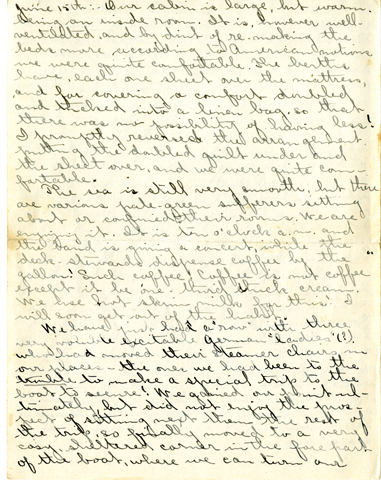 June 15th:- Our cabin is large, but warm.
being an inside room. It is, however well-
ventilated, and by dint of re-making the
beds more according to American notions,
we were quite comfortable. The berths
have, each one sheet over the mattress,
and for covering a comfort doubled
and thrust into a linen bag, so that
there was no possibility of having less!
I promptly reversed the arrangement
putting the doubled quilt under and
the sheet over, and we were quite com-
fortable.
The sea is still very smooth, but there
are various pale green sufferers sitting
about or confined to their rooms. We are
enjoying it. It is ten o'clock a.m. and
the band is giving a concert, while the
deck-stewards dispense coffee by the
gallon! Such coffee! Coffee is not coffee
except it be one-third thick cream.
We use hot skim milk for this. I
will soon get out of the habit.
We have just had a "row" with three
very voluble excitable German "ladies"(?)
who had moved their steamer chairs on
our places - the ones we had been to the
trouble to make a special trip to the
boat to secure! We gained our point ul-
timately, but did not enjoy the pros-
pect of sitting next them the rest of
the trip, so finally moved to a very
cosy, sheltered corner in the fore part
of the boat, where we can turn our